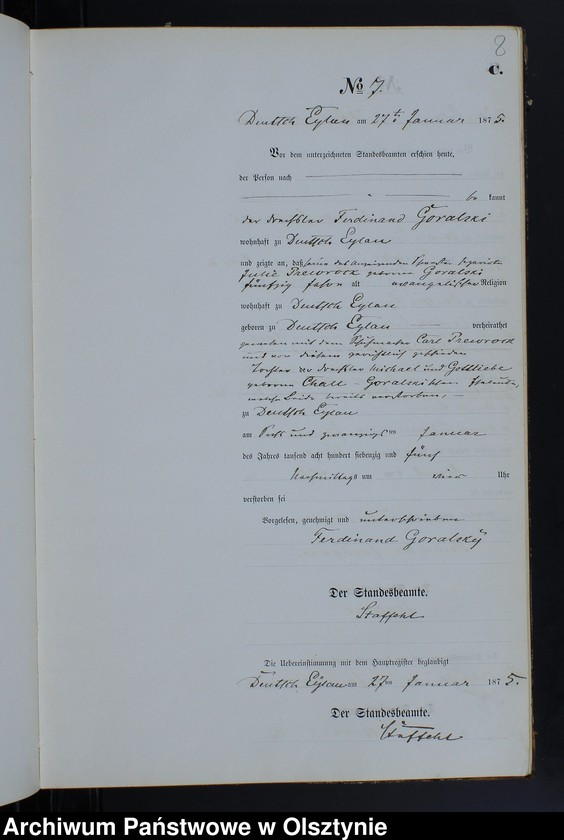 8
C.
No 7.
Deutsch Eylau am 27ten Januar 1875.
Vor dem unterzeichneten Standesbeamten erschien heute,
der Person nach
be kannt
der Drechsler Ferdinand Goralski
wohnhaft zu Deutsch Eylau
und zeigte an, daß seine des Anzeigenden Schwester
Julie Preworock geborene Goralski
fünfzig Jahre alt evangelischer Religion
wohnhaft zu Deutsch Eylau
geboren zu Deutsch Eylau verheirathet
gewesen mit dem Schuhmacher Carl Preworock
und von diesem gerichtlich geschieden
Tochter der Drechsler Michael und Gottliebe
geborene Chall - Goralskischen Eheleute,
welche Beide bereits verstorben,
zu Deutsch Eylau
am sechs und zwanzigsten Januar
des Jahres tausend acht hundert siebenzig und fünf
Nachmittags um vier Uhr
verstorben sei
Vorgelesen, genehmigt und unterschrieben
Ferdinand Goralsky
Der Standesbeamte.
Staffehl
Die Uebereinstimmung mit dem Hauptregister beglaubigt
Deutsch Eylau am 27ten Januar 1875.
Der Standesbeamte.
Staffehl
Archiwum Państwowe w Olsztynie